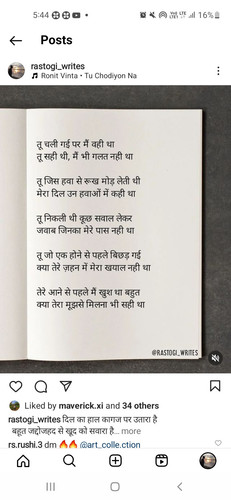 5:44
16%
Posts
rastogi_writes
Ronit Vinta • Tu Chodiyon Na
तू चली गई पर मैं वही था
तू सही थी, मैं भी गलत नही था
तू जिस हवा से रूख मोड़ लेती थी
मेरा दिल उन हवाओं में कही था
तू निकली थी कुछ सवाल लेकर
जवाब जिनका मेरे पास नही था
तू जो एक होने से पहले बिछड़ गई
क्या तेरे ज़हन में मेरा खयाल नही था
तेरे आने से पहले मैं खुश था बहुत
क्या तेरा मूझसे मिलना भी सही था
@RASTOGI_WRITES
Liked by maverick.xi and 34 others
rastogi_writes दिल का हाल कागज पर उतारा है
बहूत जद्दोजहद से खूद को सवारा है... more
rs.rushi.3 dm 🔥🔥 @art_colle.ction